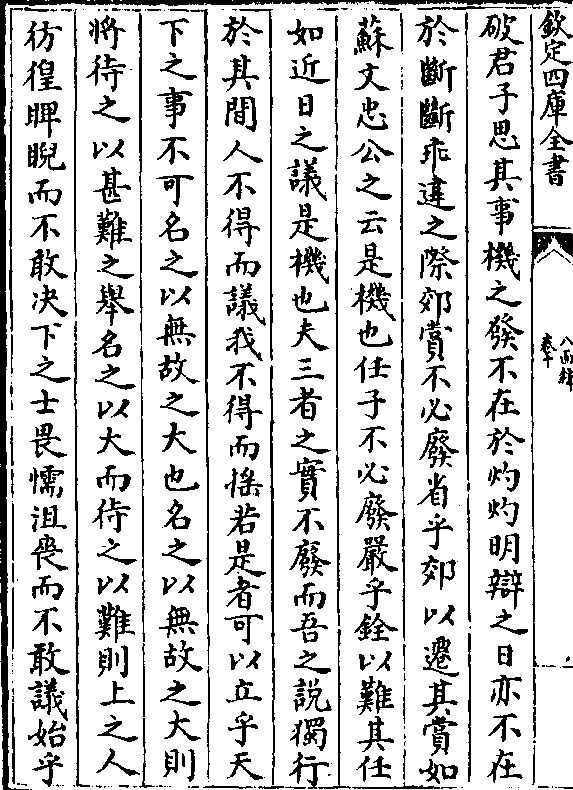 欽定四庫全書
八面鋒
卷十
破君子思其事機之發不在於灼灼明辯之日亦不在
於斷斷乖違之際郊賞不必廢省乎郊以遷其賞如
蘇文忠公之云是機也任子不必廢嚴乎銓以難其任
如近日之議是機也夫三者之實不廢而吾之說獨行
於其間人不得而議我不得而揺若是者可以立乎天
下之事不可名之以無故之大也名之以無故之大則
將待之以甚難之舉名之以大而待之以難則上之人
彷徨睥睨而不敢決下之士畏懦沮喪而不敢議始乎